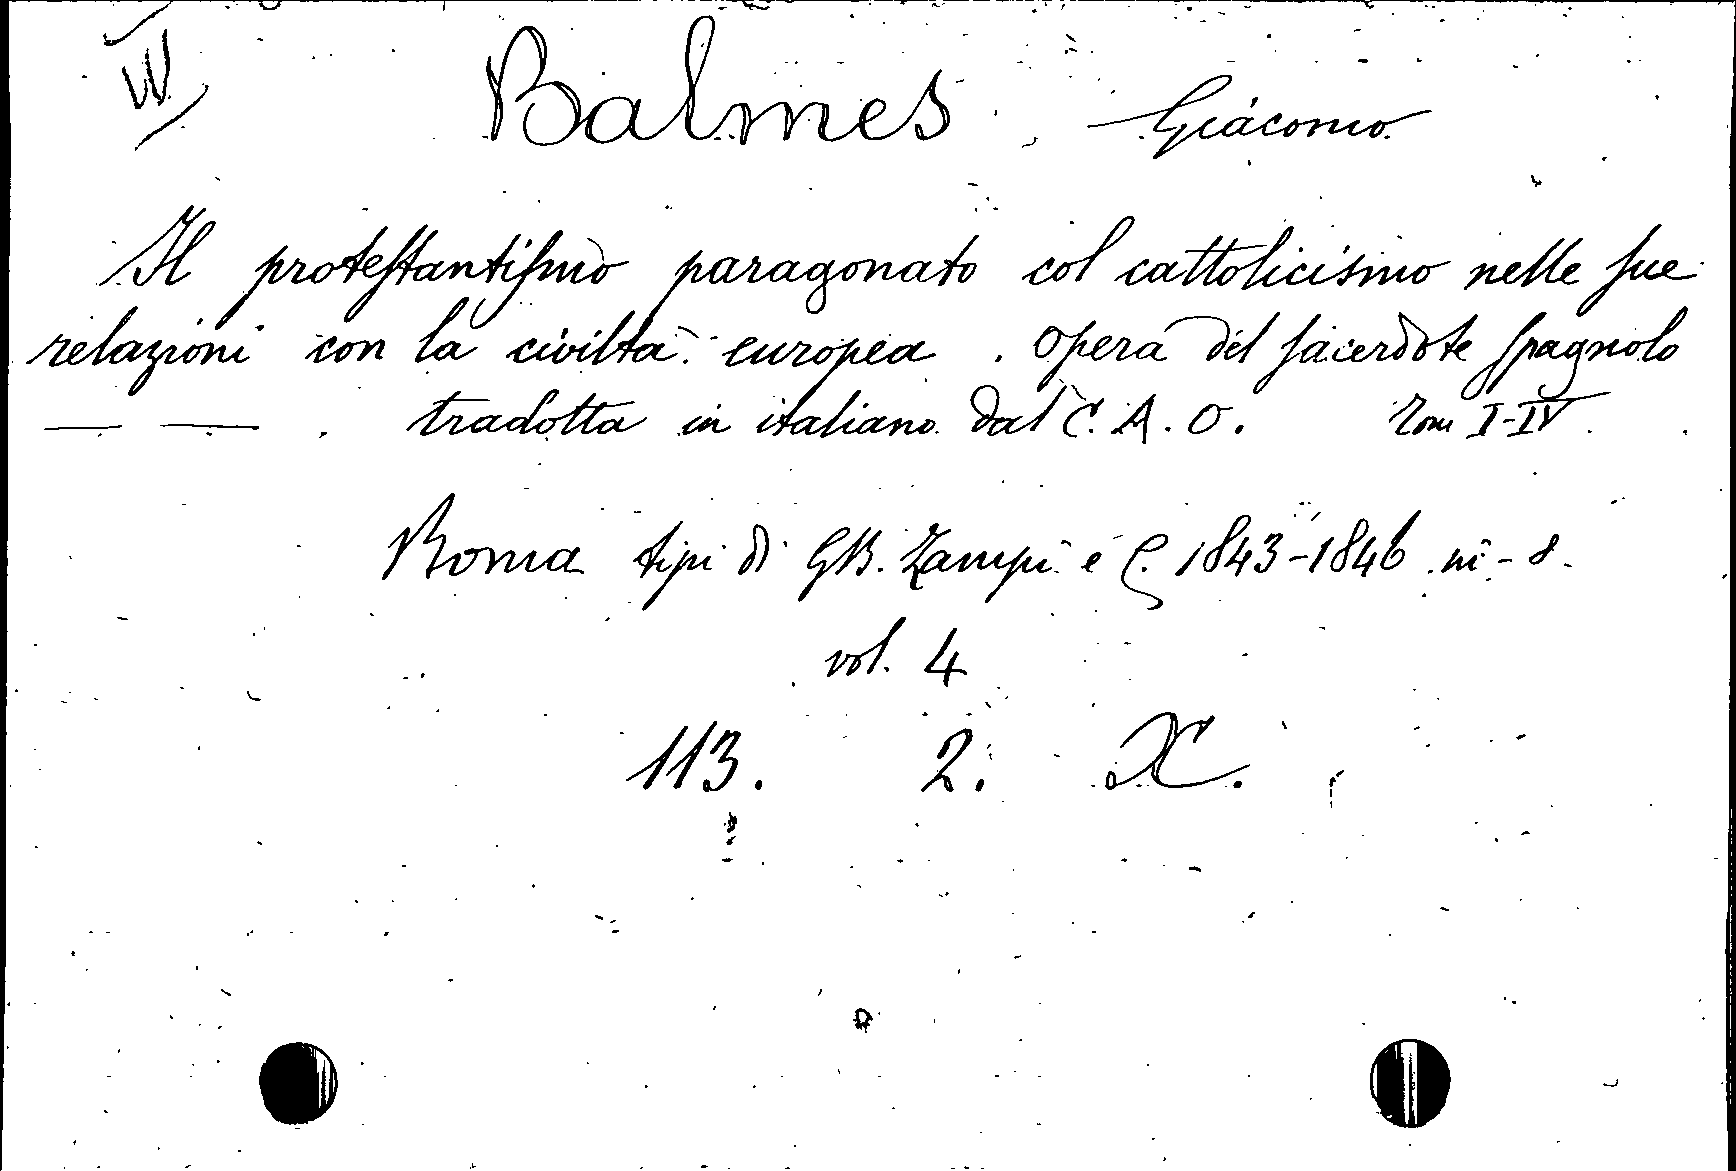 Balmes Giacomo
Il proteſtantiſmo paragonato col cattolicismo nelle ſue
relazioni con la civiltà europea. Opera del ſacerdote ſpagnolo
— — . tradotta in italiano dal C. A. O. Tom I-IV.
Roma tipi di GB. Zampi e C. 1843-1846 in-8.
vol. 4
113. 2. X.